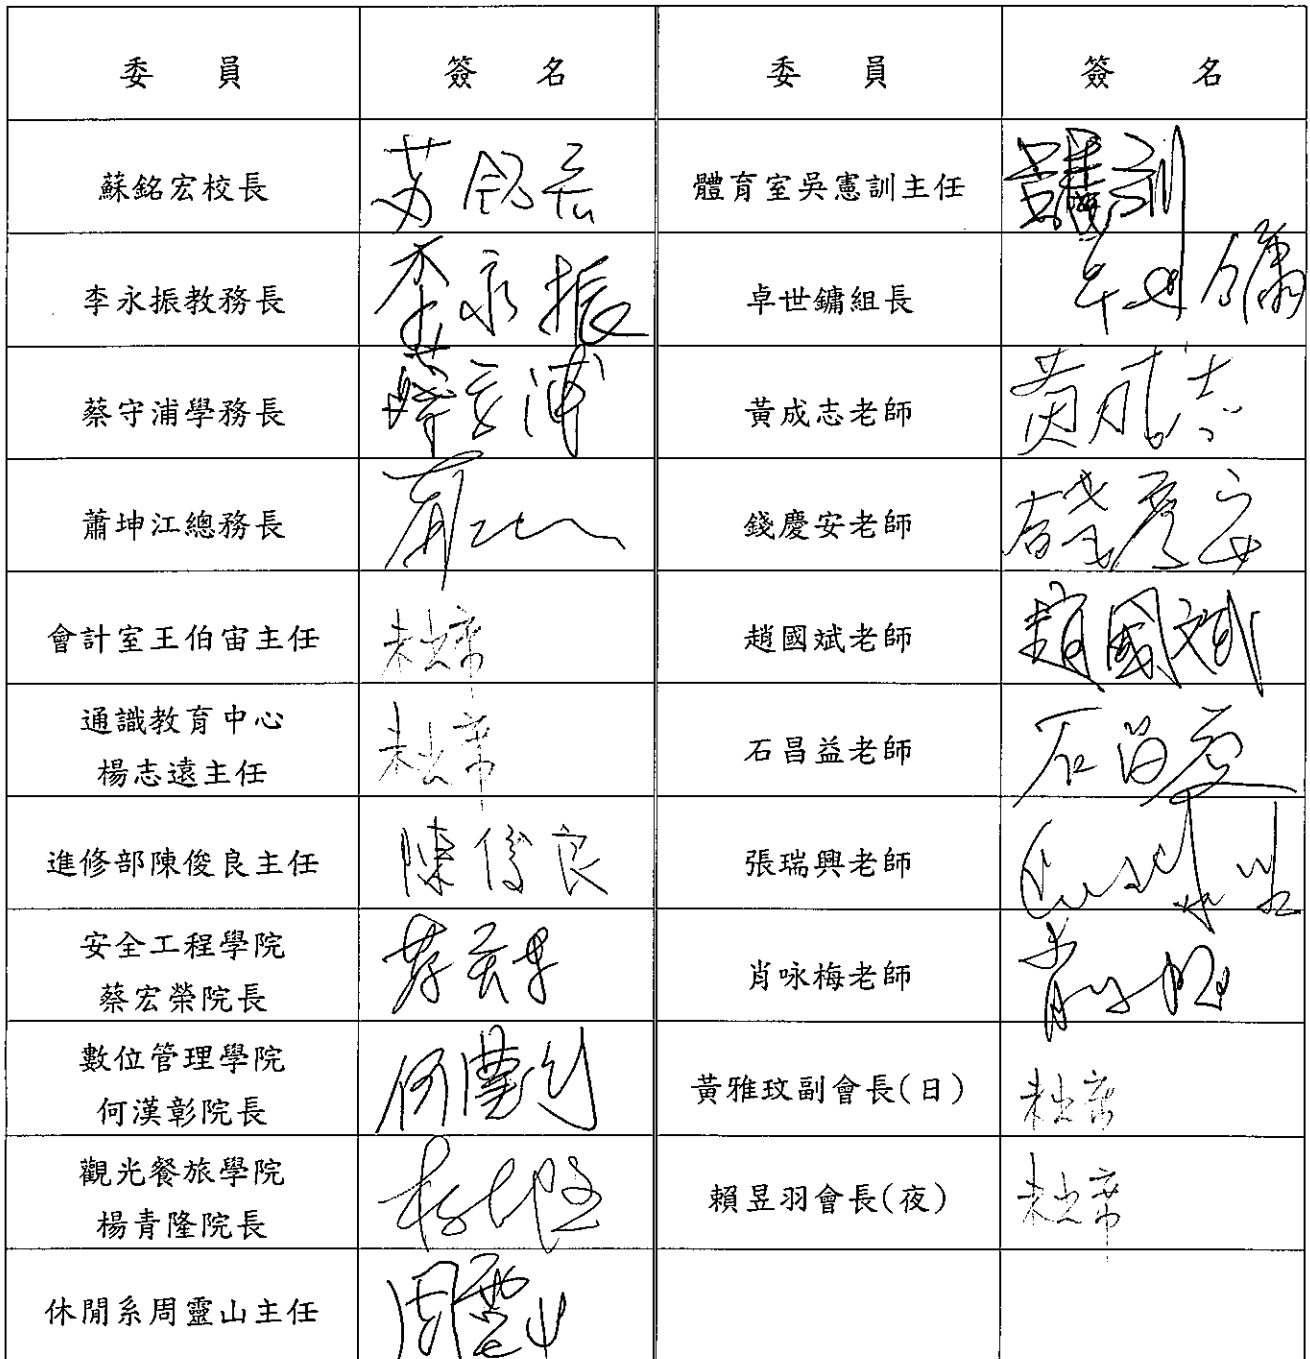 委員 簽名 委員 簽名
蘇銘宏校長 苏銘宏 體育室吳憲訓主任
李永振教務長 李永振 卓世鏞組長
蔡守浦學務長 黃成志老師 黃成志
蕭坤江總務長 錢慶安老師
會計室王伯宙主任 未出席 趙國斌老師 趙國斌
通識教育中心
楊志遠主任 未出席 石昌益老師 石昌益
進修部陳俊良主任 陳俊良 張瑞興老師
安全工程學院
蔡宏榮院長 肖咏梅老師
數位管理學院
何漢彰院長 黃雅玟副會長(日) 未出席
觀光餐旅學院
楊青隆院長 賴昱羽會長(夜) 未出席
休閒系周靈山主任 周靈山